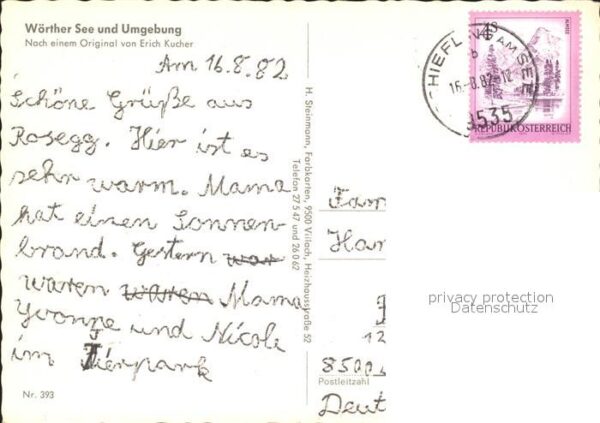 Wörther See und Umgebung
Nach einem Original von Erich Kucher
Am 16.8.82
Schöne Grüße aus
Rosegg. Hier ist es
sehr warm. Mama
hat einen Sonnen-
brand. Gestern war
waren waren Mama
Yvonne und Nicole
im Tierpark
Nr. 393
H. Steinmann, Farbkarten, 9500 Villach, Heizhausstraße 52
Telefon 27 5 47 und 26 0 62
4S
ALMSEE
REPUBLIK ÖSTERREICH
SCHIEFLING AM SEE
b
16.-8.82-12
9535
Fam
Han
12
8500
Postleitzahl
Deut
privacy protection
Datenschutz